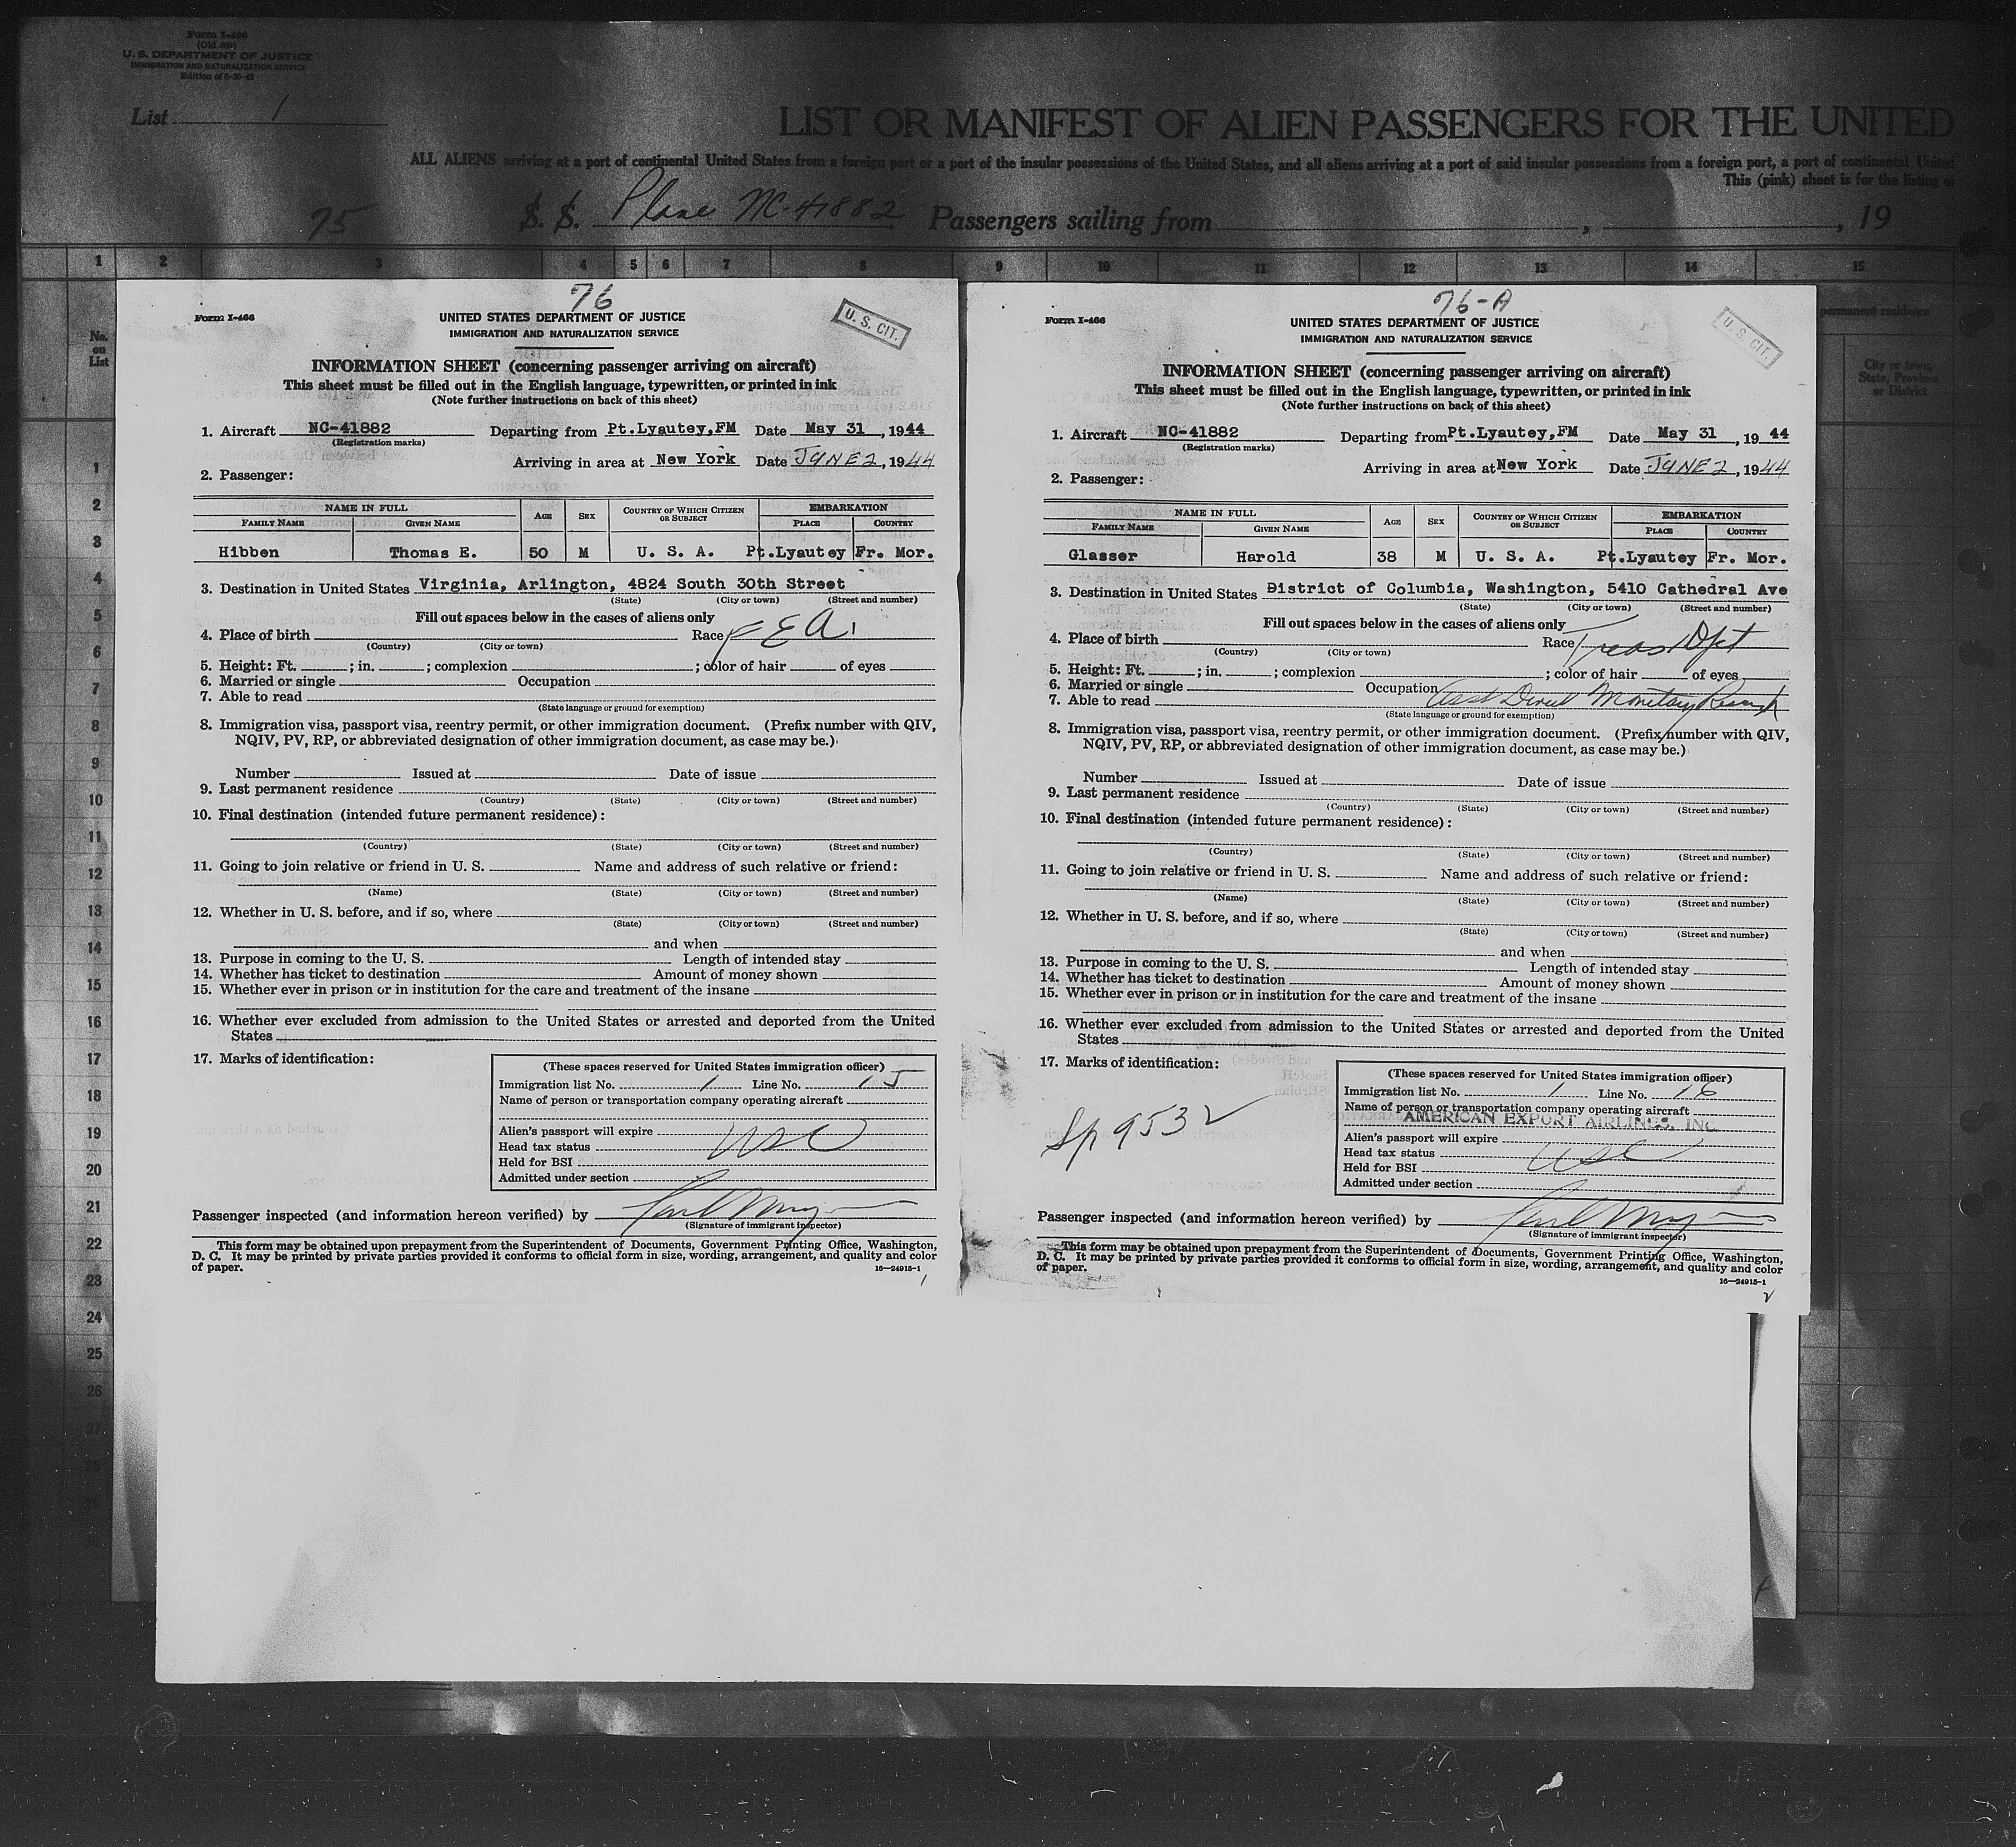 Form I-466
(Old 500)
U. S. DEPARTMENT OF JUSTICE
IMMIGRATION AND NATURALIZATION SERVICE
List 1
LIST OR MANIFEST OF ALIEN PASSENGERS FOR THE UNITED
ALL ALIENS arriving at a port of continental United States from a foreign port or a port of the insular possessions of the United States, and all aliens arriving at a port of said insular possessions from a foreign port, a port of continental United
This (pink) sheet is for the listing of
75 S. S. Plane NC-41882 Passengers sailing from , , 19
1 2 3 4 5 6 7 8 9 10 11 12 13 14 15
No. on List
permanent residence
City or town, State, Province or District
1
2
3
4
5
6
7
8
9
10
11
12
13
14
15
16
17
18
19
20
21
22
23
24
25
26
27
28
76
Form I-466
UNITED STATES DEPARTMENT OF JUSTICE
IMMIGRATION AND NATURALIZATION SERVICE
U. S. CIT.
INFORMATION SHEET (concerning passenger arriving on aircraft)
This sheet must be filled out in the English language, typewritten, or printed in ink
(Note further instructions on back of this sheet)
1. Aircraft NC-41882 Departing from Pt.Lyautey,FM Date May 31, 1944
(Registration marks)
Arriving in area at New York Date JUNE 2, 1944
2. Passenger:
NAME IN FULL AGE SEX COUNTRY OF WHICH CITIZEN OR SUBJECT EMBARKATION
FAMILY NAME GIVEN NAME PLACE COUNTRY
Hibben Thomas E. 50 M U. S. A. Pt.Lyautey Fr. Mor.
3. Destination in United States Virginia, Arlington, 4824 South 30th Street
(State) (City or town) (Street and number)
Fill out spaces below in the cases of aliens only
4. Place of birth Race FEA.
(Country) (City or town)
5. Height: Ft. ; in. ; complexion ; color of hair of eyes
6. Married or single Occupation
7. Able to read
(State language or ground for exemption)
8. Immigration visa, passport visa, reentry permit, or other immigration document. (Prefix number with QIV,
NQIV, PV, RP, or abbreviated designation of other immigration document, as case may be.)
Number Issued at Date of issue
9. Last permanent residence
(Country) (State) (City or town) (Street and number)
10. Final destination (intended future permanent residence):
(Country) (State) (City or town) (Street and number)
11. Going to join relative or friend in U. S. Name and address of such relative or friend:
(Name) (State) (City or town) (Street and number)
12. Whether in U. S. before, and if so, where
(State) (City or town) (Street and number)
and when
13. Purpose in coming to the U. S. Length of intended stay
14. Whether has ticket to destination Amount of money shown
15. Whether ever in prison or in institution for the care and treatment of the insane
16. Whether ever excluded from admission to the United States or arrested and deported from the United
States
17. Marks of identification:
(These spaces reserved for United States immigration officer)
Immigration list No. 1 Line No. 15
Name of person or transportation company operating aircraft
Alien's passport will expire
Head tax status USC
Held for BSI
Admitted under section
Passenger inspected (and information hereon verified) by
(Signature of immigrant inspector)
This form may be obtained upon prepayment from the Superintendent of Documents, Government Printing Office, Washington,
D. C. It may be printed by private parties provided it conforms to official form in size, wording, arrangement, and quality and color
of paper.
16—24915-1
76-A
Form I-466
UNITED STATES DEPARTMENT OF JUSTICE
IMMIGRATION AND NATURALIZATION SERVICE
U. S. CIT.
INFORMATION SHEET (concerning passenger arriving on aircraft)
This sheet must be filled out in the English language, typewritten, or printed in ink
(Note further instructions on back of this sheet)
1. Aircraft NC-41882 Departing from Pt.Lyautey,FM Date May 31, 1944
(Registration marks)
Arriving in area at New York Date JUNE 2, 1944
2. Passenger:
NAME IN FULL AGE SEX COUNTRY OF WHICH CITIZEN OR SUBJECT EMBARKATION
FAMILY NAME GIVEN NAME PLACE COUNTRY
Glasser Harold 38 M U. S. A. Pt.Lyautey Fr. Mor.
3. Destination in United States District of Columbia, Washington, 5410 Cathedral Ave
(State) (City or town) (Street and number)
Fill out spaces below in the cases of aliens only
4. Place of birth Race Treas Dpt
(Country) (City or town)
5. Height: Ft. ; in. ; complexion ; color of hair of eyes
6. Married or single Occupation Asst Direct Monetary Research
7. Able to read
(State language or ground for exemption)
8. Immigration visa, passport visa, reentry permit, or other immigration document. (Prefix number with QIV,
NQIV, PV, RP, or abbreviated designation of other immigration document, as case may be.)
Number Issued at Date of issue
9. Last permanent residence
(Country) (State) (City or town) (Street and number)
10. Final destination (intended future permanent residence):
(Country) (State) (City or town) (Street and number)
11. Going to join relative or friend in U. S. Name and address of such relative or friend:
(Name) (State) (City or town) (Street and number)
12. Whether in U. S. before, and if so, where
(State) (City or town) (Street and number)
and when
13. Purpose in coming to the U. S. Length of intended stay
14. Whether has ticket to destination Amount of money shown
15. Whether ever in prison or in institution for the care and treatment of the insane
16. Whether ever excluded from admission to the United States or arrested and deported from the United
States
17. Marks of identification:
Sp 9532
(These spaces reserved for United States immigration officer)
Immigration list No. 1 Line No. 16
Name of person or transportation company operating aircraft
AMERICAN EXPORT AIRLINES, INC.
Alien's passport will expire
Head tax status USC
Held for BSI
Admitted under section
Passenger inspected (and information hereon verified) by
(Signature of immigrant inspector)
This form may be obtained upon prepayment from the Superintendent of Documents, Government Printing Office, Washington,
D. C. It may be printed by private parties provided it conforms to official form in size, wording, arrangement, and quality and color
of paper.
16—24915-1